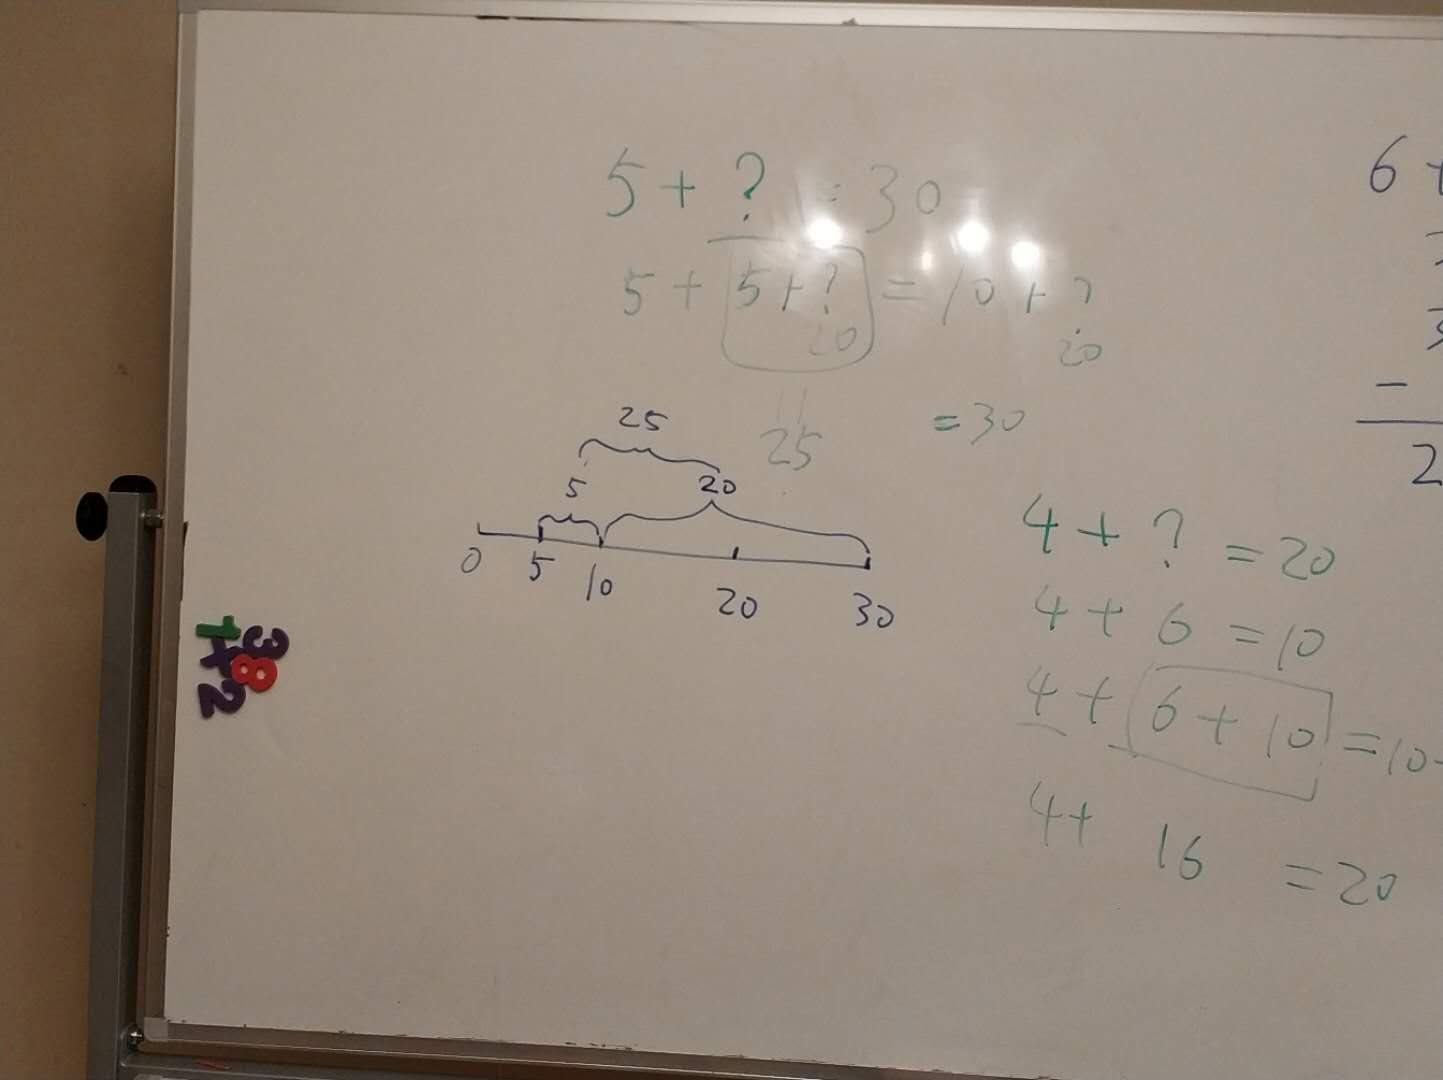 5 + ? = 30
5 + 5 + ? = 10 + ?
20 20
25 = 30
25
5 20
0 5 10 20 30
4 + ? = 20
4 + 6 = 10
4 + 6 + 10 = 10
4 + 16 = 20
6 +
-
2
1
+ 3
8
2